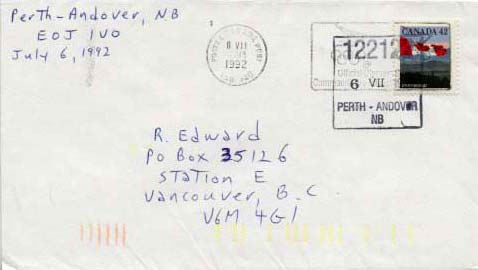 Perth-Andover, NB
E0J 1V0
July 6, 1992
8 VII
1992
CANADA 42
12212
6 VII
PERTH - ANDOVER
NB
R. Edward
Po Box 35126
Station E
Vancouver, B.C
V6M 4G1